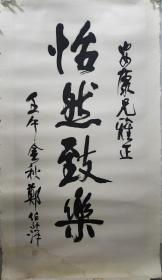 安康兄雅正
怡然致樂
壬午金秋鄭伯萍